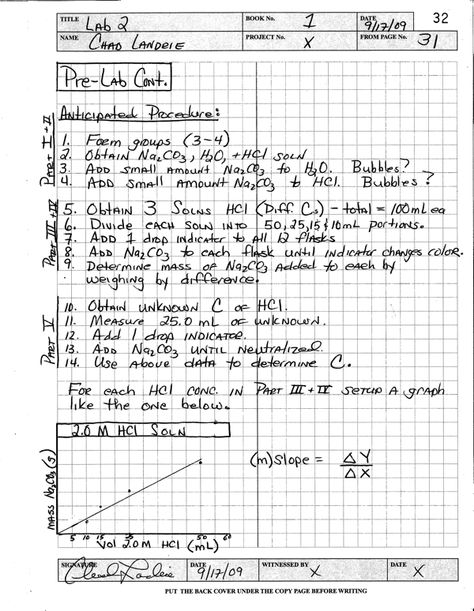 TITLE LAB 2 BOOK No. 1 DATE 9/17/09 32
NAME CHAD LANDRIE PROJECT No. X FROM PAGE No. 31
PRE-LAB CONT.
Anticipated Procedure:
PART I + II
1. FORM groups (3-4)
2. OBTAIN Na2CO3, H2O, + HCl SOLN
3. ADD small AMOUNT Na2CO3 to H2O. Bubbles?
4. ADD SMALL AMOUNT Na2CO3 to HCl. Bubbles?
PART III + IV
5. OBTAIN 3 SOLNS HCl (Diff. Cs) - total = 100mL ea
6. Divide each SOLN INTO 50, 25, 15, & 10mL portions.
7. ADD 1 drop INdicator to All 12 flasks
8. ADD Na2CO3 to each flask UNTIL INdicator changes color.
9. Determine MASS of Na2CO3 Added to each by
weighing by difference.
PART V
10. Obtain UNKNOWN C of HCl.
11. Measure 25.0 mL of UNKNOWN.
12. Add 1 drop INDICATOR.
13. ADD Na2CO3 UNTIL Neutralized.
14. Use Above data to determine C.
FOR each HCl CONC. IN PART III + IV SETUP A graph
like the one below.
2.0 M HCl SOLN
MASS Na2CO3 (g)
(m) Slope = ΔY
ΔX
5 10 15 25 50 60
Vol 2.0 M HCl (mL)
SIGNATURE Chad Landrie DATE 9/17/09 WITNESSED BY X DATE X
PUT THE BACK COVER UNDER THE COPY PAGE BEFORE WRITING